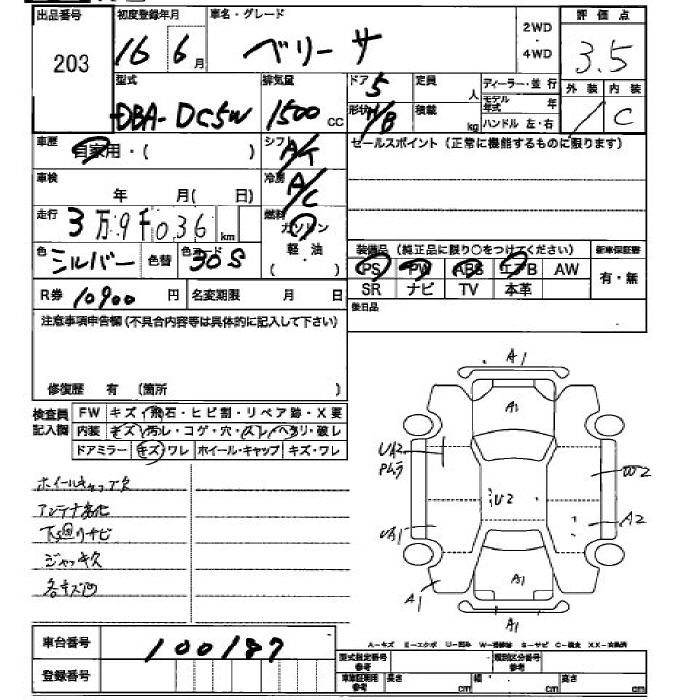 出品番号 初度登録年月 車名・グレード 2WD・4WD 評価点
203 16 6月 ベリーサ 3.5
型式 排気量 ドア 5 定員 人 ディーラー・並行 外装 内装
DBA-DC5W 1500 cc 形状 H/B 積載 kg モデル年式 年 / C
ハンドル 左・右
車歴 自家用・( ) シフト A/T セールスポイント(正常に機能するものに限ります)
車検 年 月( 日) 冷房 A/C
走行 3万9千036 km 燃料 ガソリン
軽・油
・( )
色 シルバー 色替 色コード 30S 装備品(純正品に限り○をつけてください) 新車保証書
PS PW ABS エアB AW 有・無
R券 10900 円 名変期限 月 日 SR ナビ TV 本革
後日品
注意事項申告欄(不具合内容等は具体的に記入して下さい)
修復歴 有 (箇所 )
検査員記入欄 FW キズ・飛石・ヒビ割・リペア跡・X要
内装 キズ・汚レ・コゲ・穴・スレ・ヘタリ・破レ
ドアミラー キズ・ワレ ホイール・キャップ キズ・ワレ
ホイールキャップ欠
アンテナ劣化
下廻りサビ
ジャッキ欠
各キズ凹
A1
A1
UA2
W2
U2
UA1
A2
A1
A1
A1
車台番号 100187
A-キズ E-エクボ U-凹み W-補修跡 S-サビ C-腐食 XX-交換済
登録番号 型式指定番号 参考 類別区分番号 参考
車庫証明用 参考 長さ cm 幅 cm 高さ cm